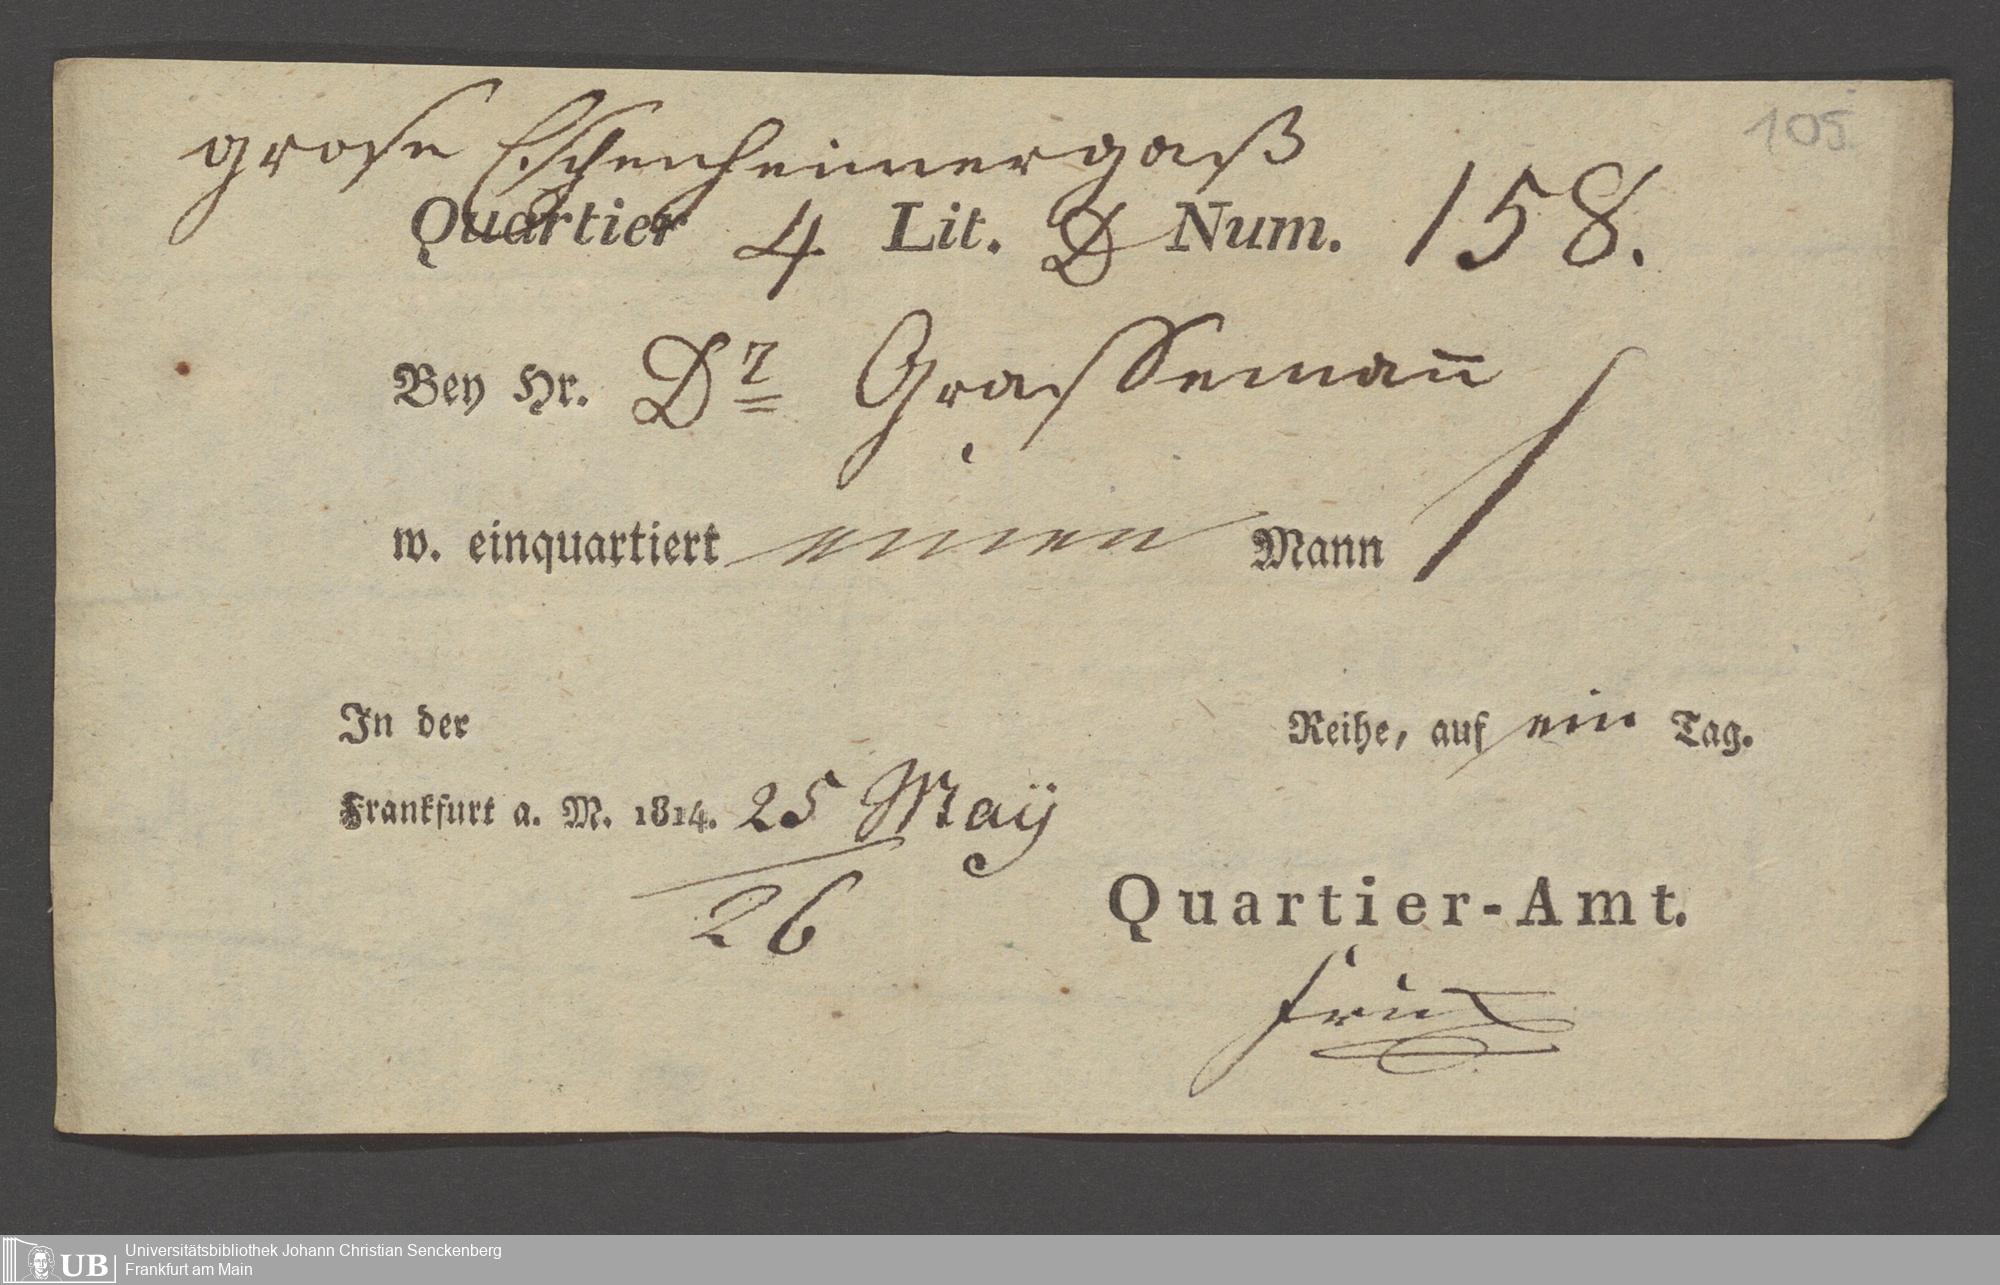 105
grose Eschenheimergaß
Quartier 4 Lit. D Num. 158.
Bey Hr. Dr Grassemañ
w. einquartiert einen Mann
In der Reihe, auf ein Tag.
Frankfurt a. M. 1814. 25 Maÿ
26
Quartier-Amt.
UB Universitätsbibliothek Johann Christian Senckenberg
Frankfurt am Main